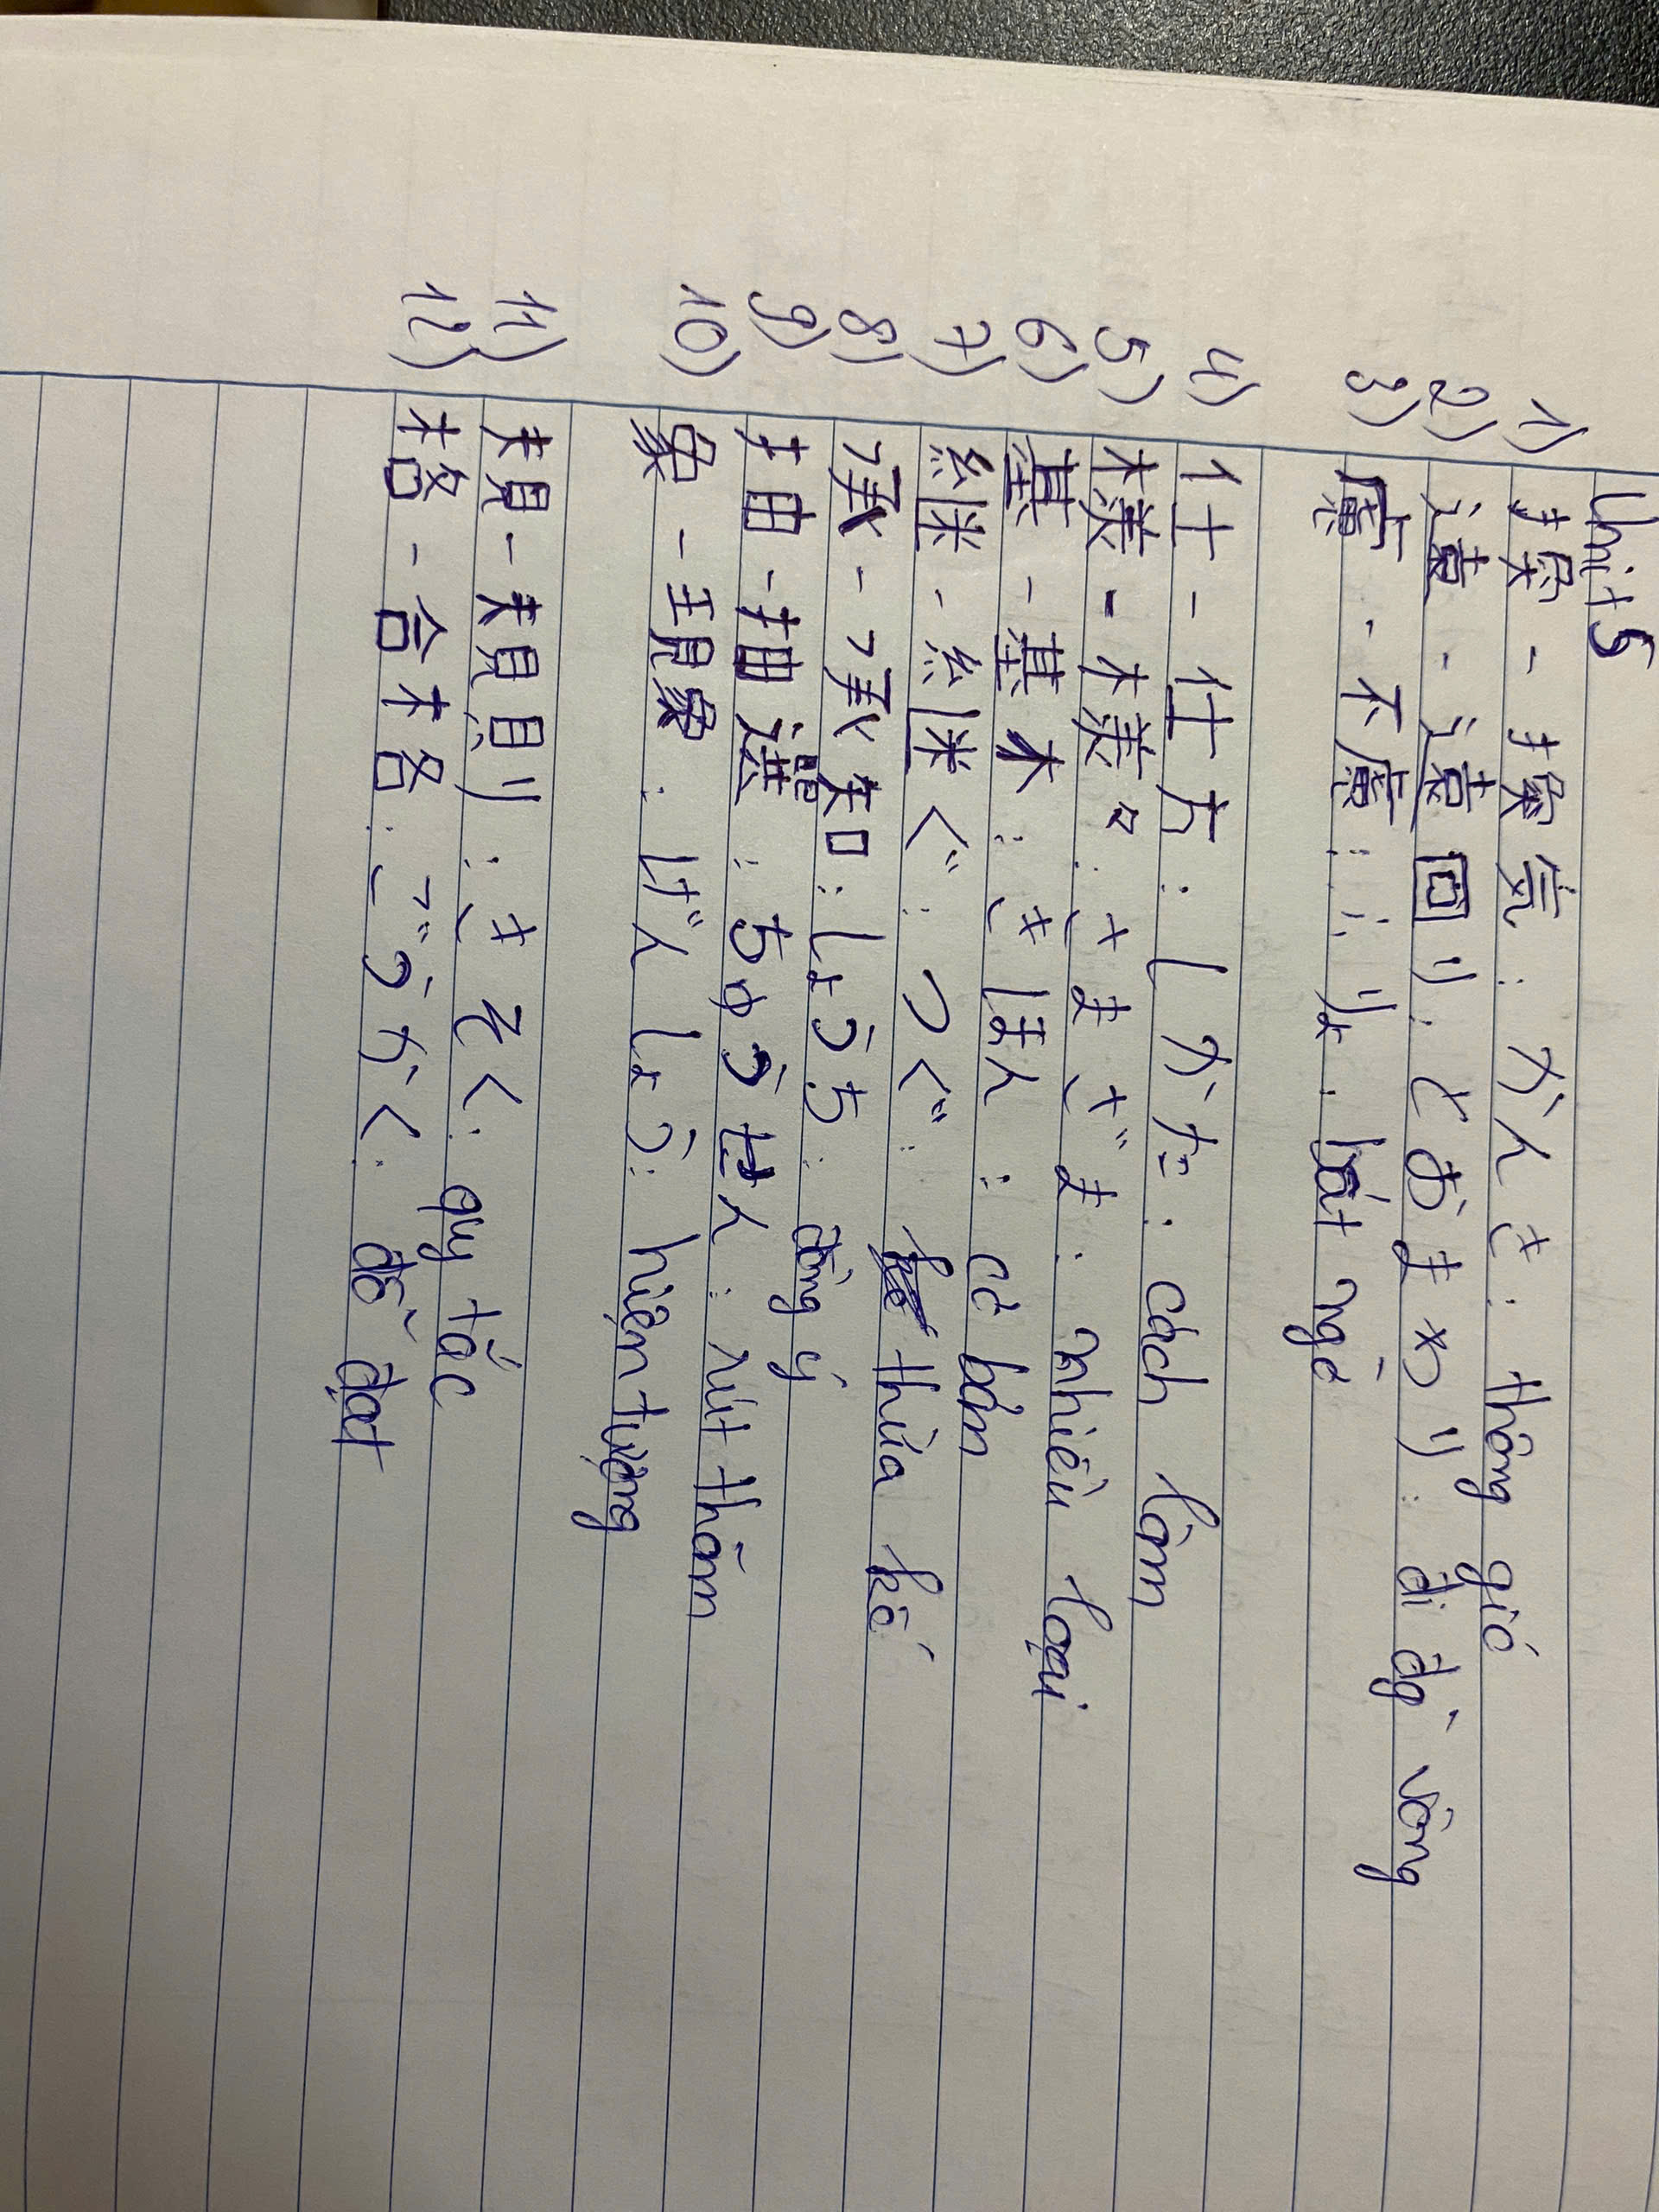 Unit 5
1) 換 - 換気 : かんき : thông gió
2) 遠 - 遠回り : とおまわり : đi đg vòng
3) 慮 - 不慮 : ふりょ : bất ngờ
4) 仕 - 仕方 : しかた : cách làm
5) 様 - 様々 : さまざま : nhiều loại
6) 基 - 基本 : きほん : cơ bản
7) 継 - 継ぐ : つぐ : thừa kế
8) 承 - 承知 : しょうち : đồng ý
9) 抽 - 抽選 : ちゅうせん : rút thăm
10) 象 - 現象 : げんしょう : hiện tượng
11) 規 - 規則 : きそく : quy tắc
12) 格 - 合格 : ごうかく : đỗ đạt